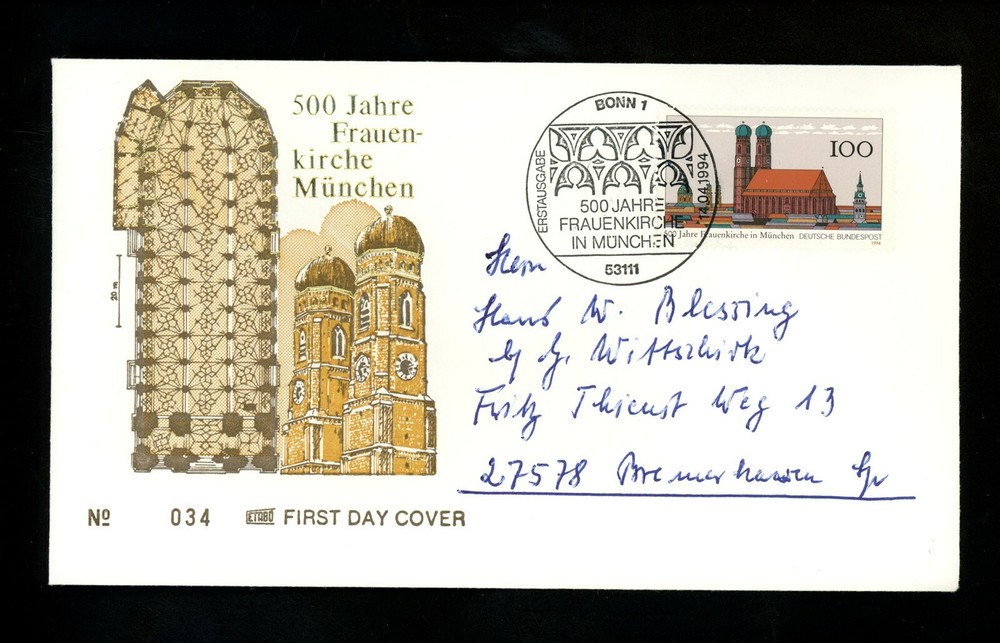 500 Jahre
Frauen-
kirche
München
20 m
BONN 1
ERSTAUSGABE
14.04.1994
500 JAHRE
FRAUENKIRCHE
IN MÜNCHEN
53111
100
500 Jahre Frauenkirche in München DEUTSCHE BUNDESPOST
1994
Herrn
Hans W. Blessing
Fritz Thienst Weg 13
27578 Bremerhaven
Nº 034 ETABÖ FIRST DAY COVER